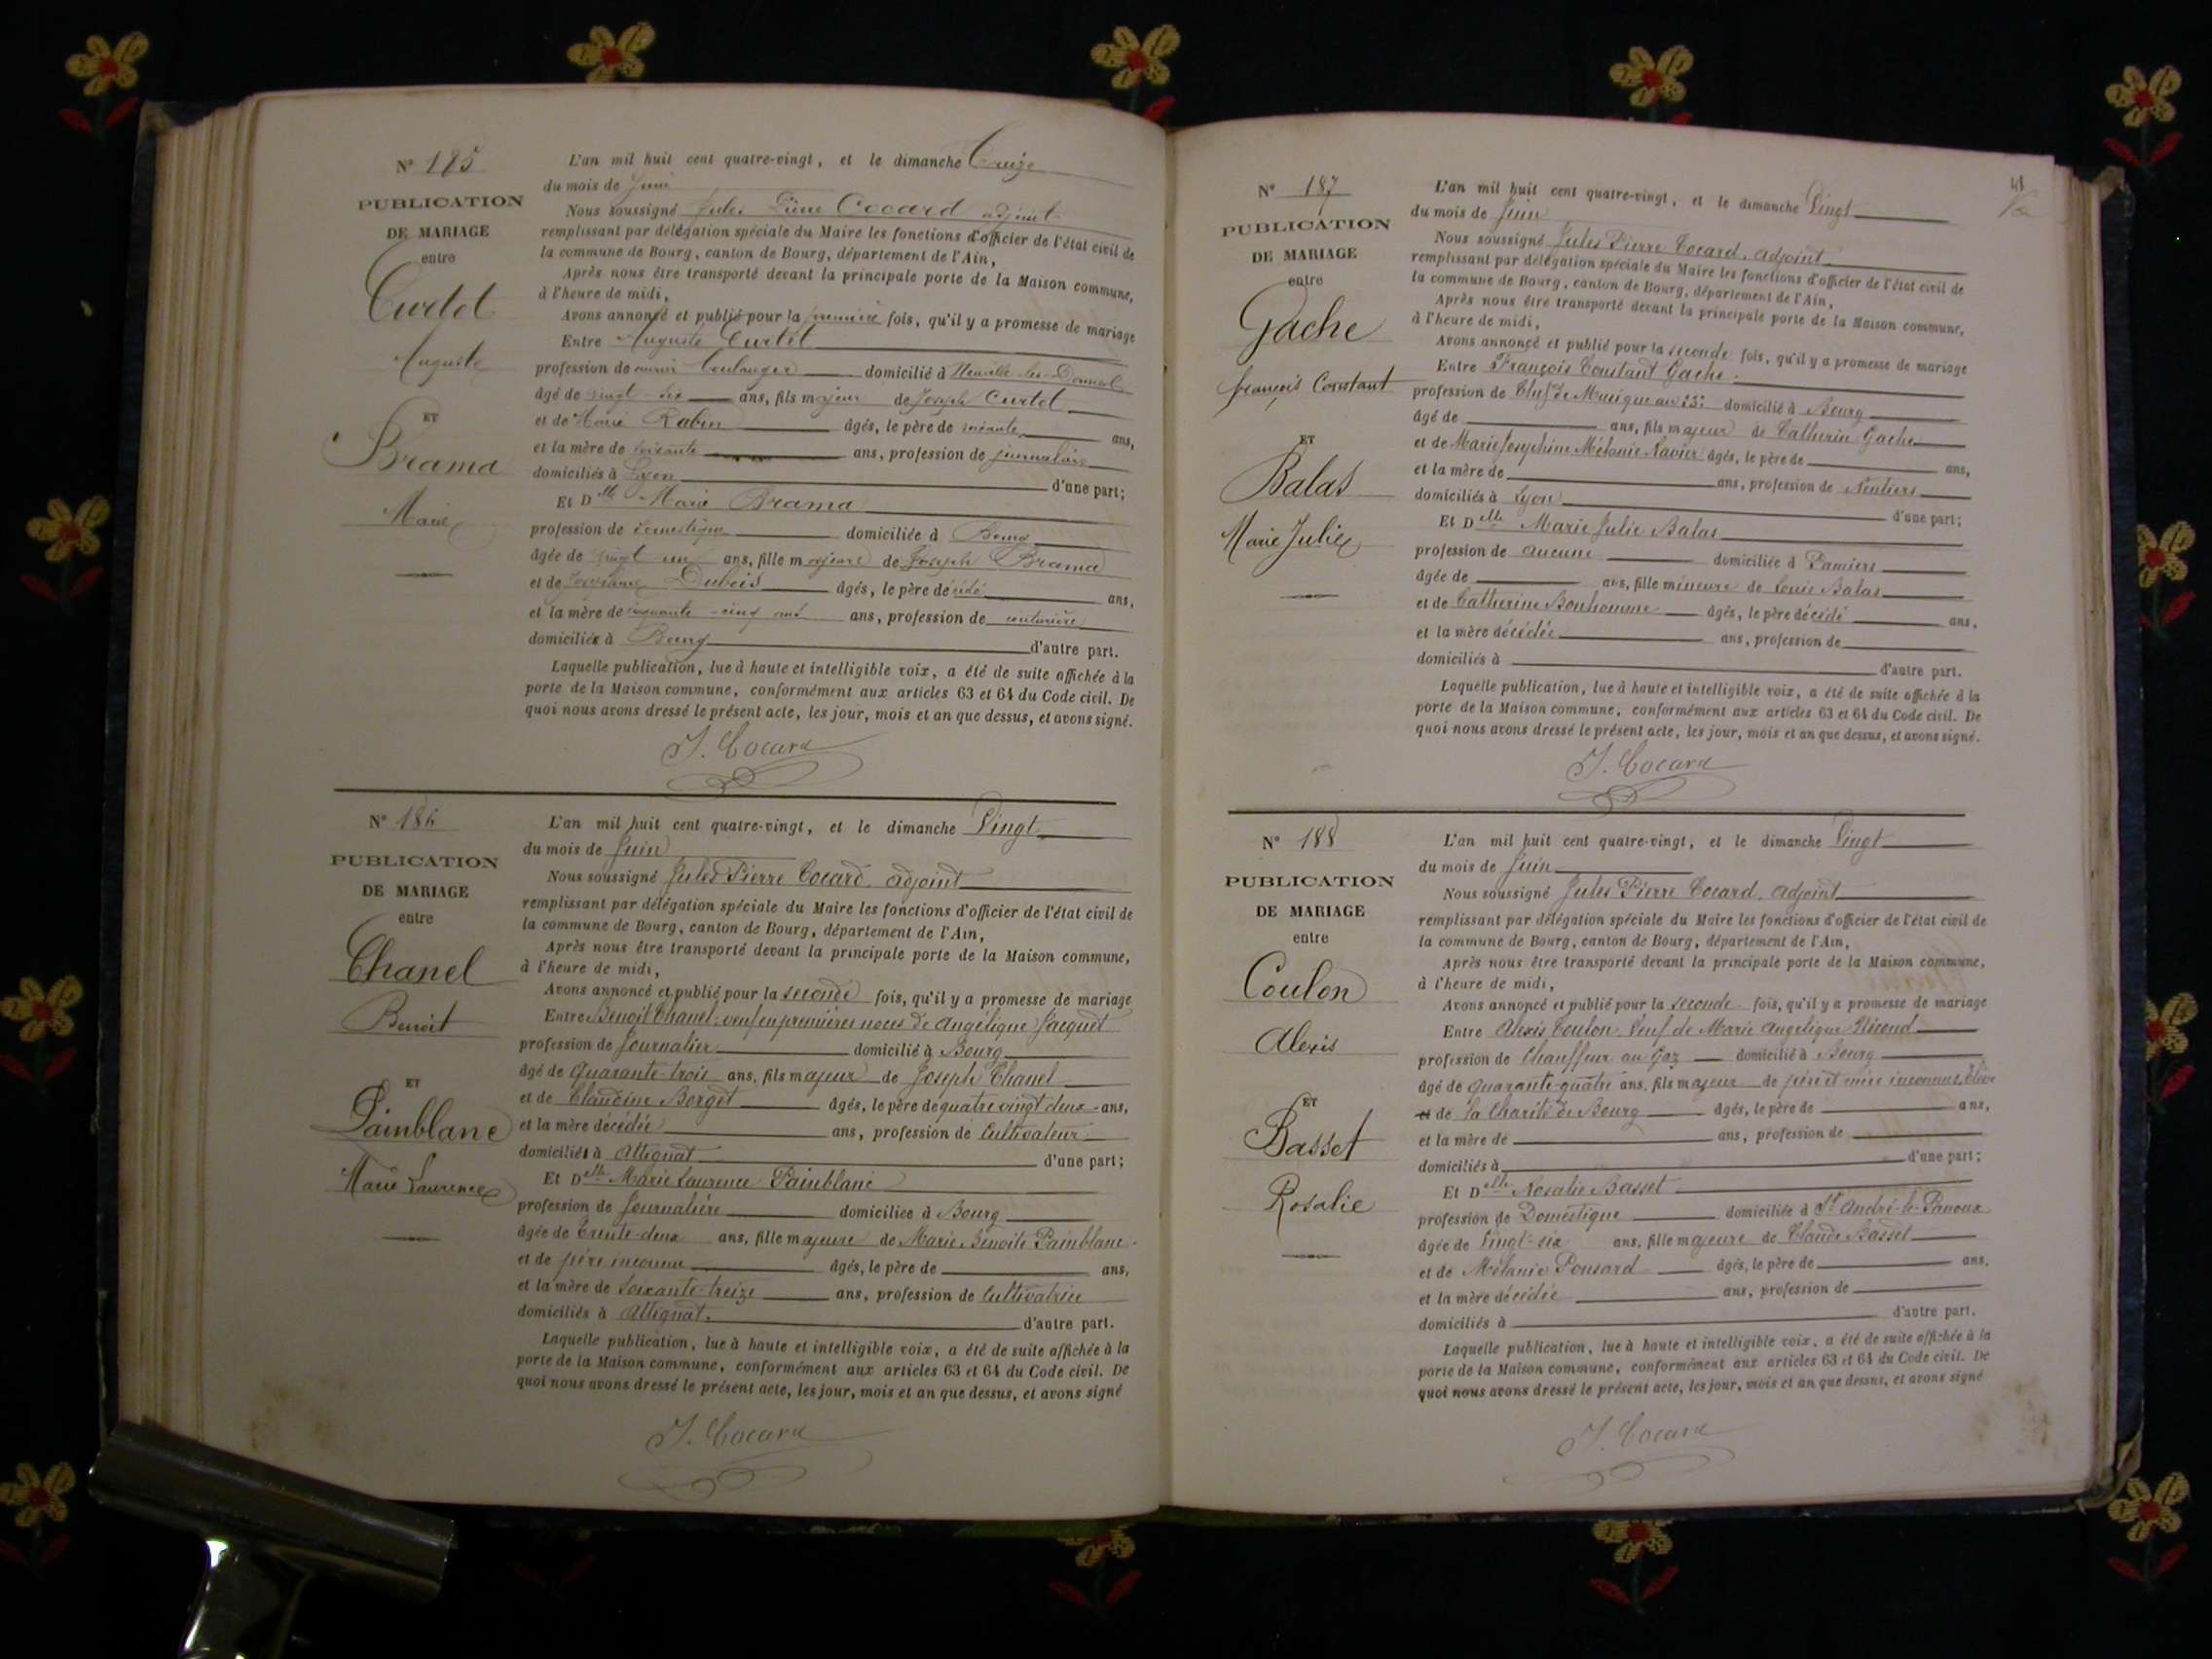 N° 185
PUBLICATION
DE MARIAGE
entre
Curtet
Auguste
ET
Brama
Marie
L'an mil huit cent quatre-vingt, et le dimanche Treize
du mois de Juin
Nous soussigné Jules Pierre Cocard adjoint
remplissant par délégation spéciale du Maire les fonctions d'officier de l'état civil de
la commune de Bourg, canton de Bourg, département de l'Ain,
Après nous être transporté devant la principale porte de la Maison commune,
à l'heure de midi,
Avons annoncé et publié pour la première fois, qu'il y a promesse de mariage
Entre Auguste Curtet
profession de ouvrier boulanger domicilié à Neuville-les-Dames
âgé de vingt-six ans, fils majeur de Joseph Curtet
et de Marie Rabin âgés, le père de soixante ans,
et la mère de soixante ans, profession de journaliers
domiciliés à Lyon d'une part;
Et Dlle Marie Brama
profession de domestique domiciliée à Bourg
âgée de vingt-un ans, fille majeure de Joseph Brama
et de Dubois âgés, le père décédé ans,
et la mère de cinquante-cinq ans ans, profession de couturière
domiciliés à Bourg d'autre part.
Laquelle publication, lue à haute et intelligible voix, a été de suite affichée à la
porte de la Maison commune, conformément aux articles 63 et 64 du Code civil. De
quoi nous avons dressé le présent acte, les jour, mois et an que dessus, et avons signé.
J. Cocard
N° 186
PUBLICATION
DE MARIAGE
entre
Chanel
Benoit
ET
Painblanc
Marie Laurence
L'an mil huit cent quatre-vingt, et le dimanche Vingt
du mois de Juin
Nous soussigné Jules Pierre Cocard, adjoint
remplissant par délégation spéciale du Maire les fonctions d'officier de l'état civil de
la commune de Bourg, canton de Bourg, département de l'Ain,
Après nous être transporté devant la principale porte de la Maison commune,
à l'heure de midi,
Avons annoncé et publié pour la seconde fois, qu'il y a promesse de mariage
Entre Benoit Chanel, veuf en premières noces de Angélique Jacquet
profession de Journalier domicilié à Bourg
âgé de Quarante-trois ans, fils majeur de Joseph Chanel
et de Claudine Borget âgés, le père de quatre vingt deux ans,
et la mère décédée ans, profession de Cultivateur
domiciliés à Attignat d'une part;
Et Delle Marie Laurence Painblanc
profession de Journalière domiciliée à Bourg
âgée de Trente-deux ans, fille majeure de Marie Benoite Painblanc
et de père inconnu âgés, le père de ans,
et la mère de Soixante-treize ans, profession de Cultivatrice
domiciliés à Attignat. d'autre part.
Laquelle publication, lue à haute et intelligible voix, a été de suite affichée à la
porte de la Maison commune, conformément aux articles 63 et 64 du Code civil. De
quoi nous avons dressé le présent acte, les jour, mois et an que dessus, et avons signé
J. Cocard
N° 187
PUBLICATION
DE MARIAGE
entre
Gache
françois Constant
ET
Balas
Marie Julie
L'an mil huit cent quatre-vingt, et le dimanche Vingt
du mois de Juin
Nous soussigné Jules Pierre Cocard, adjoint
remplissant par délégation spéciale du Maire les fonctions d'officier de l'état civil de
la commune de Bourg, canton de Bourg, département de l'Ain,
Après nous être transporté devant la principale porte de la Maison commune,
à l'heure de midi,
Avons annoncé et publié pour la seconde fois, qu'il y a promesse de mariage
Entre François Constant Gache
profession de Chef de Musique au domicilié à Bourg
âgé de ans, fils majeur de Catherin Gache
et de Marie Josephine Mélanie Navier âgés, le père de ans,
et la mère de ans, profession de Rentiers
domiciliés à Lyon d'une part;
Et Delle Marie Julie Balas
profession de aucune domiciliée à Pamiers
âgée de ans, fille mineure de Louis Balas
et de Catherine Bonhomme âgés, le père décédé ans,
et la mère décédée ans, profession de
domiciliés à d'autre part.
Laquelle publication, lue à haute et intelligible voix, a été de suite affichée à la
porte de la Maison commune, conformément aux articles 63 et 64 du Code civil. De
quoi nous avons dressé le présent acte, les jour, mois et an que dessus, et avons signé.
J. Cocard
N° 188
PUBLICATION
DE MARIAGE
entre
Coulon
Alexis
ET
Basset
Rosalie
L'an mil huit cent quatre-vingt, et le dimanche Vingt
du mois de Juin
Nous soussigné Jules Pierre Cocard, adjoint
remplissant par délégation spéciale du Maire les fonctions d'officier de l'état civil de
la commune de Bourg, canton de Bourg, département de l'Ain,
Après nous être transporté devant la principale porte de la Maison commune,
à l'heure de midi,
Avons annoncé et publié pour la seconde fois, qu'il y a promesse de mariage
Entre Alexis Coulon, Veuf de Marie Angélique
profession de Chauffeur au Gaz domicilié à Bourg
âgé de Quarante-quatre ans, fils majeur de père et mère inconnus, Elève
et de la Charité de Bourg âgés, le père de ans,
et la mère de ans, profession de
domiciliés à d'une part;
Et Delle Rosalie Basset
profession de Domestique domiciliée à St André-le-Panoux
âgée de Vingt-six ans, fille majeure de Claude Basset
et de Mélanie Ponsard âgés, le père de ans,
et la mère décédée ans, profession de
domiciliés à d'autre part.
Laquelle publication, lue à haute et intelligible voix, a été de suite affichée à la
porte de la Maison commune, conformément aux articles 63 et 64 du Code civil. De
quoi nous avons dressé le présent acte, les jour, mois et an que dessus, et avons signé
J. Cocard